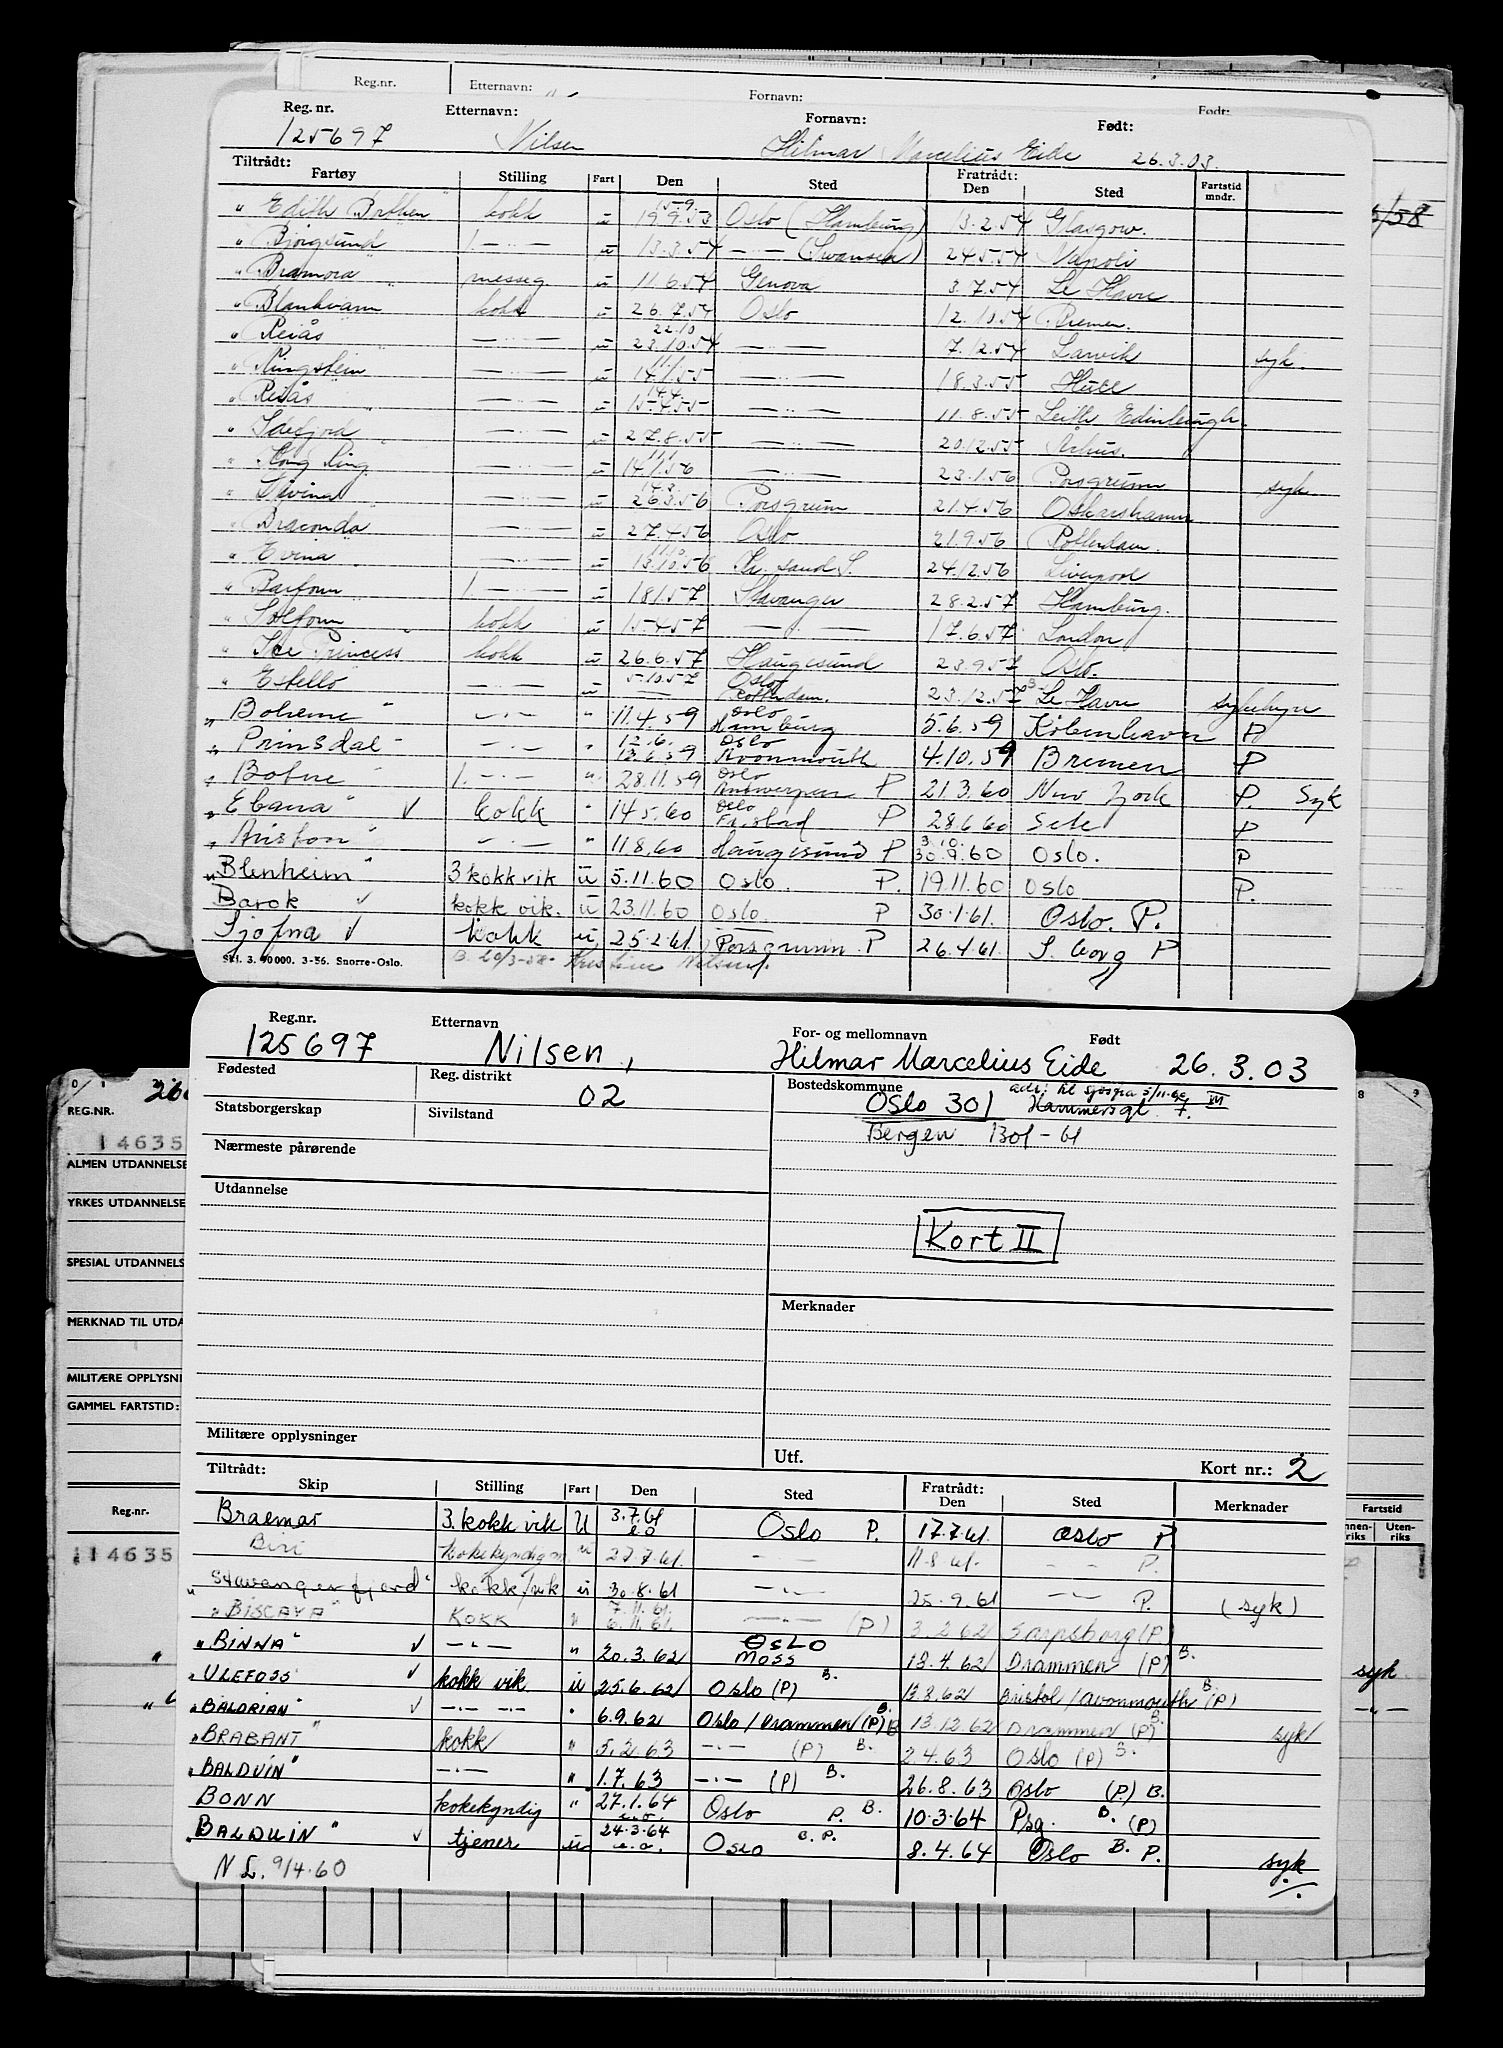 Reg.nr. Etternavn: Fornavn: Født:
Reg. nr. Etternavn: Fornavn: Født:
125697 Nilsen Hilmar Marcelius Eide 26.3.03.
Tiltrådt: Fratrådt:
Fartøy Stilling Fart Den Sted Den Sted Fartstid mndr.
kokk u 15.9. 19.9.53 Oslo (Hamburg) 13.2.54 Glasgow. 5/58
" Bjørgsund " 1. —..— u 13.3.54 —..— (Swansea) 24.5.54 Napoli
" Bramora " messeg. u 11.6.54 Genova 3.7.54 Le Havre
" Blankvann kokk u 26.7.54 Oslo 12.10.54 Bremen.
" Reiås " —..— u 22.10 23.10.54 —..— 7.12.54 Larvik syk.
" Ringstein —..— u 11/1 14.1.55 —..— 18.3.55 Hull
" Reiås " —..— u 14.4. 15.4.55 —..— 11.8.55 Leith Edinburgh.
" Idefjord " —..— u 27.8.55 —..— 20.12.55 Århus.
" Kong Ring " —..— u 11/1 14.1.56 —..— 23.1.56 Porsgrunn syk
—..— u 14.3 26.3.56 Porsgrunn 21.4.56 Oskarshamn
" Braconda " —..— u 27.4.56 Oslo 21.9.56 Rotterdam.
" Evina " —..— u 11.10 13.10.56 Kr. sand S. 24.12.56 Liverpool
1. —..— u 18.1.57 Stavanger 28.2.57 Hamburg.
" Solfonn kokk u 15.4.57 —..— 17.6.57 London
" Ice Princess " kokk u 26.6.57 Haugesund 23.9.57 Oslo.
" Estello —..— u 5.10.57 Oslo Rotterdam. 23.12.57 Le Havre
" Boheme " —..— " 11.4.59 Oslo Hamburg 5.6.59 København P
" Prinsdal " —..— " 12.6. 13.6.59 Oslo Avonmouth 4.10.59 Bremen P
1. —..— " 28.11.59 Oslo Antwerpen P 21.3.60 New York P. Syk
" Elana " ✓ kokk " 14.5.60 Oslo Fr.stad P 28.6.60 Sete P
—..— " 11.8.60 Haugesund P 3.10. 30.9.60 Oslo. P
" Blenheim " 3 kokk vik u 5.11.60 Oslo. P. 19.11.60 Oslo P.
Barok ✓ kokk vik. u 23.11.60 Oslo. P 30.1.61. Oslo. P.
Sjofna ✓ kokk u, 25.2.61. Porsgrunn. P 26.4.61. S. borg P
Skl. 3. 40 000. 3-56. Snorre-Oslo. B. 20/3-58-
Reg.nr. Etternavn For- og mellomnavn Født
125697 Nilsen, Hilmar Marcelius Eide 26.3.03
Fødested Reg. distrikt Bostedskommune
02 Oslo 301 Hammersgt. 7.
Statsborgerskap Sivilstand
Bergen 1301 - 61
Nærmeste pårørende
Utdannelse
Kort II
Merknader
Militære opplysninger Utf. Kort nr.: 2
REG.NR.
14635
ALMEN UTDANNELSE
YRKES UTDANNELSE
SPESIAL UTDANNELS
MERKNAD TIL UTDA
MILITÆRE OPPLYSNI
GAMMEL FARTSTID:
Reg.-nr.
114635
Fartstid
nnen-riks Uten-riks
syk
Tiltrådt: Fratrådt:
Skip Stilling Fart Den Sted Den Sted Merknader
Braemar 3. kokk vik U 3.7.61 e.o Oslo P. 17.7.61. Oslo P
Biri kokekyndig u 27.7.61. —..— 11.8.61. —..— P.
" Stavangerfjord " kokk/vik u 30.8.61 —..— 25.9.61 —..— P. (syk)
" BISCAYA " KOKK " 7.11.61. 6.11.61. —..— (P) 3.2.62 Sarpsborg (P)
" BINNA " ✓ —..— " 20.3.62 OSLO Moss 13.4.62 Drammen (P) B.
" ULEFOSS ✓ kokk vik. u 25.6.62 Oslo (P) B. 13.8.62 Bristol / Avonmouth (P) B.
" BALDRIAN " ✓ —..— —..— " 6.9.62 Oslo / Drammen (P) B. 13.12.62 Drammen (P) B. syk
" BRABANT " kokk " 5.2.63 —..— (P) B. 2.4.63 Oslo (P) B.
" BALDUIN " —..— " 1.7.63 —..— (P) B. 26.8.63 Oslo (P) B.
BONN kokekyndig " 27.1.64 e.o. Oslo P. B. 10.3.64 Psg. B. (P)
" BALDUIN " ✓ tjener u 24.3.64 e.o. Oslo B. P. 8.4.64 Oslo B. P. syk
N L. 9/4.60